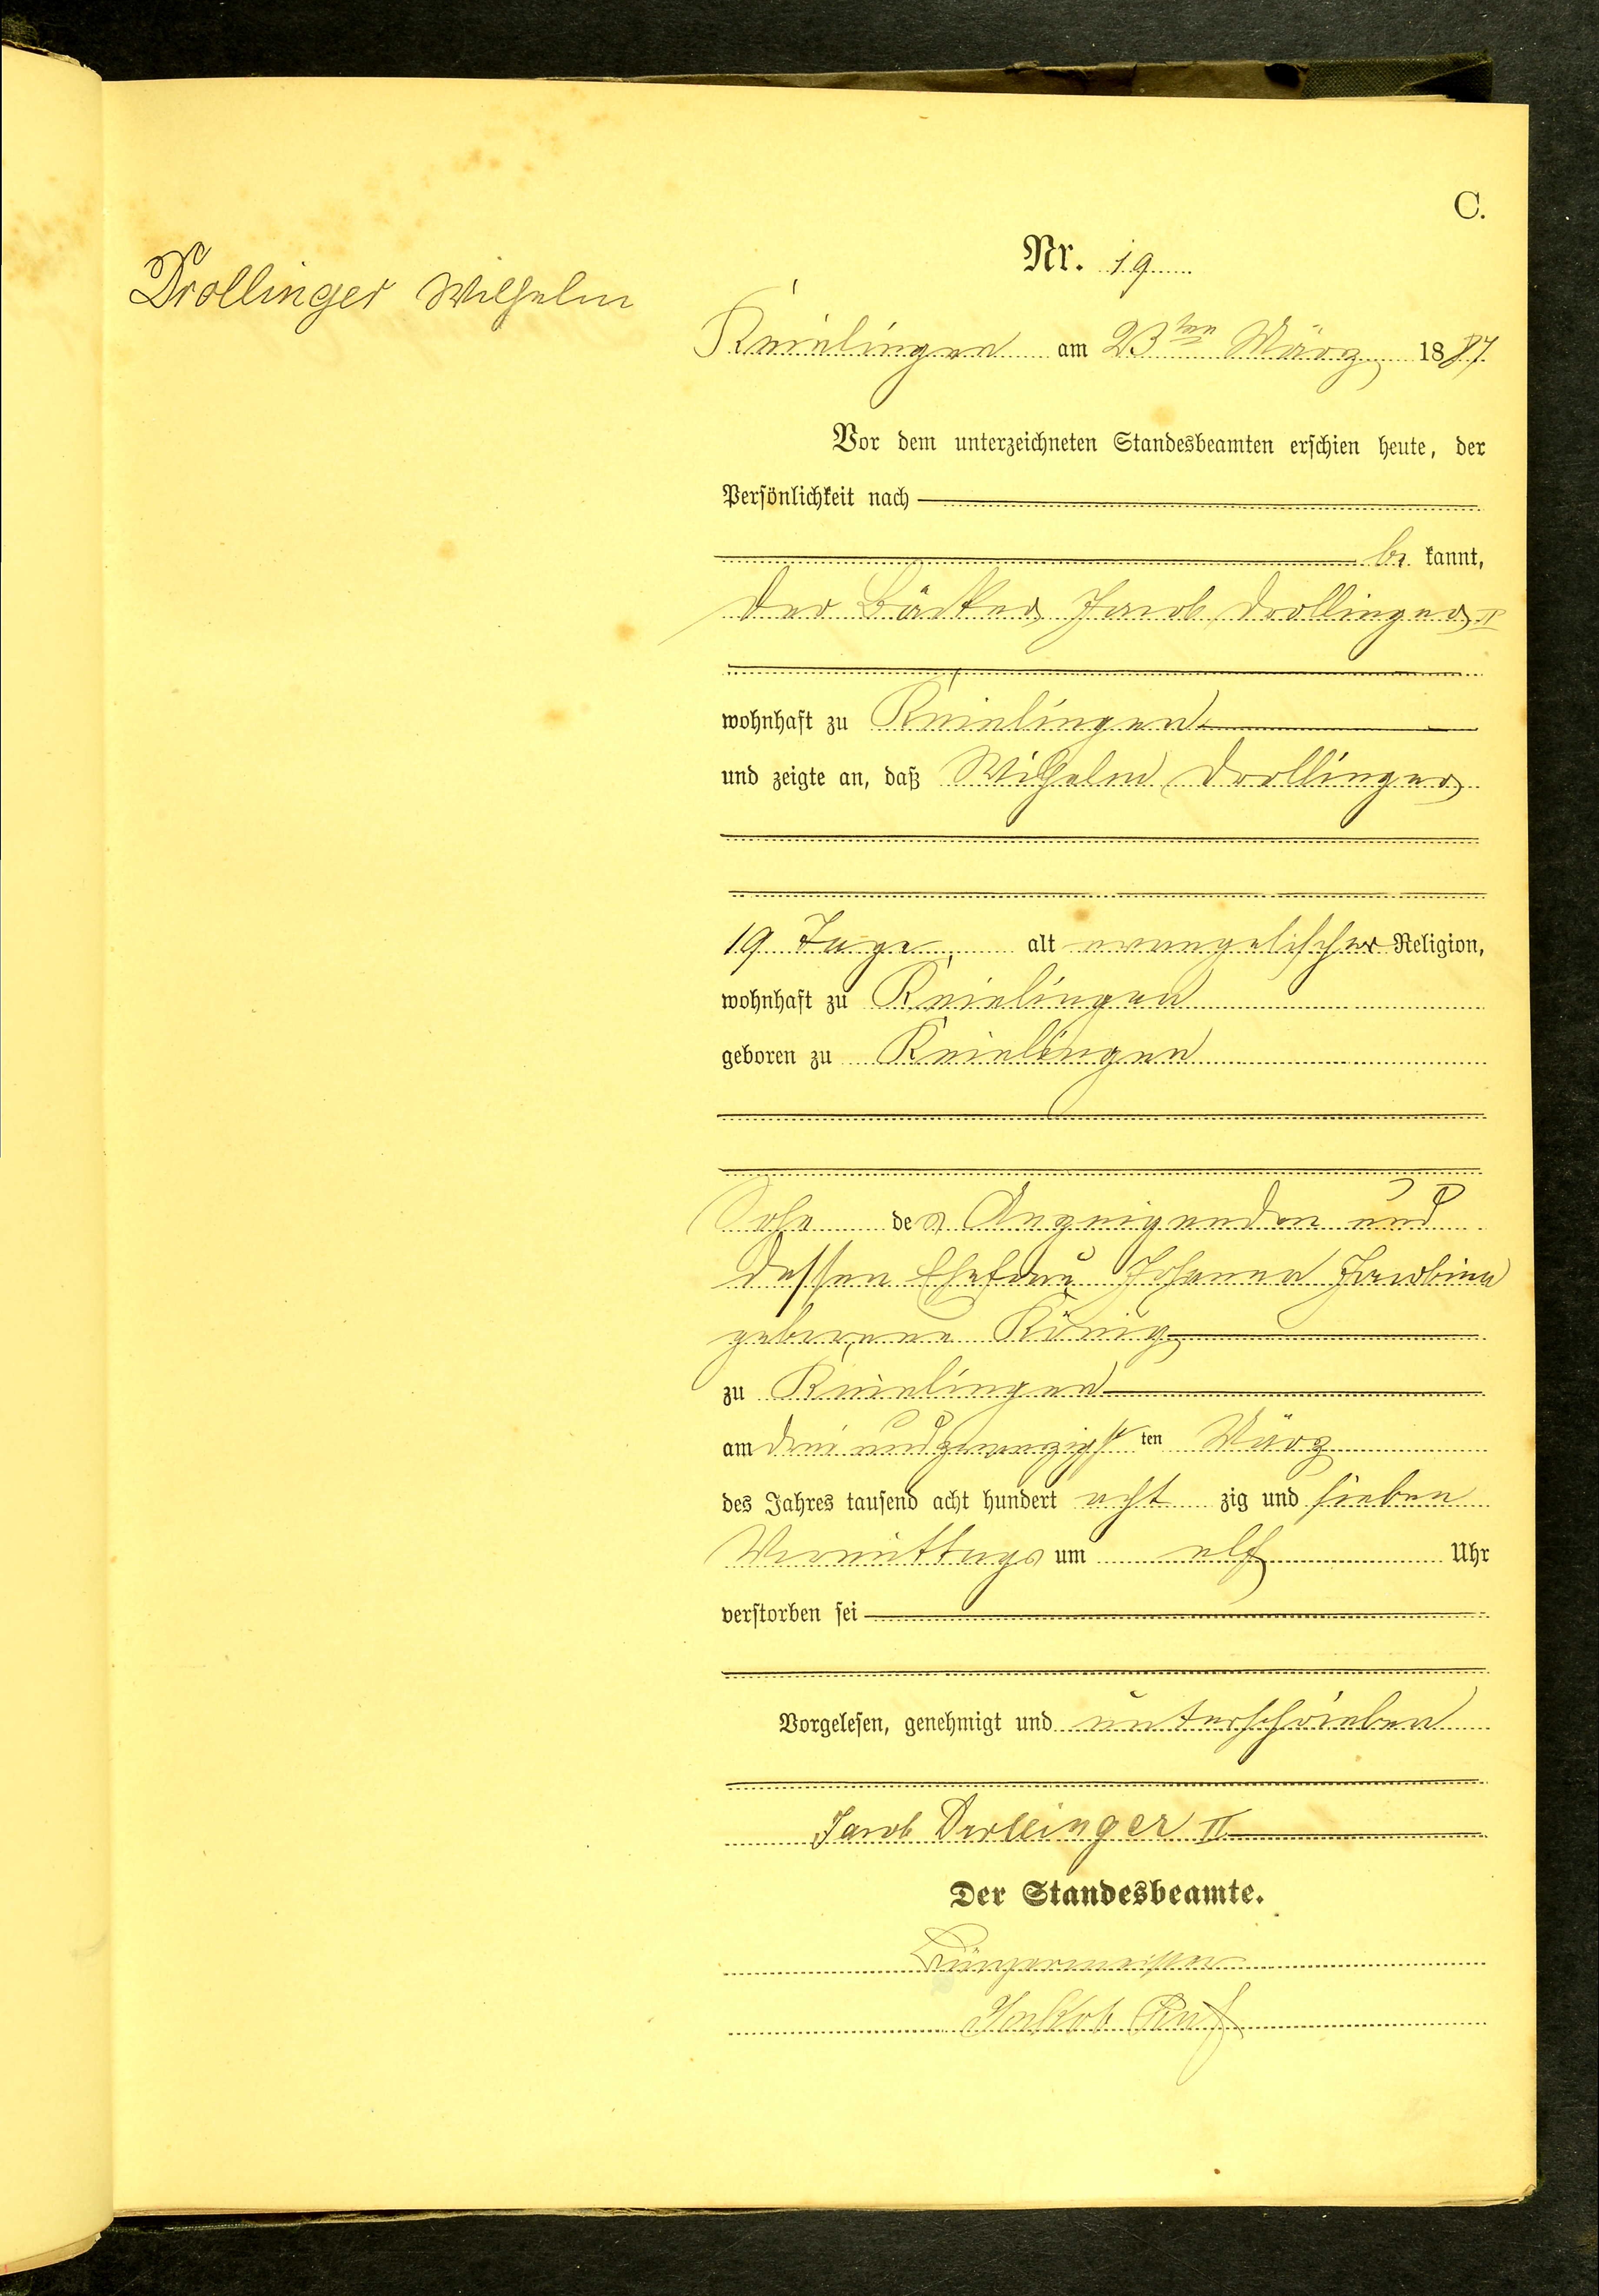 C.
Drollinger Wilhelm
Nr. 19
Knielingen am 23ten März 1887
Vor dem unterzeichneten Standesbeamten erschien heute, der
Persönlichkeit nach
be kannt,
der Bäcker Jacob Drollinger II
wohnhaft zu Knielingen
und zeigte an, daß Wilhelm Drollinger
19 Tage, alt evangelischer Religion,
wohnhaft zu Knielingen
geboren zu Knielingen
Sohn des Anzeigenden und
dessen Ehefrau Johanna Jacobina
geborene König
zu Knielingen
am drei und zwanzigsten März
des Jahres tausend acht hundert acht zig und sieben
Vormittags um elf Uhr
verstorben sei
Vorgelesen, genehmigt und unterschrieben
Jacob Drollinger II
Der Standesbeamte.
Bürgermeister
Jakob Ruf